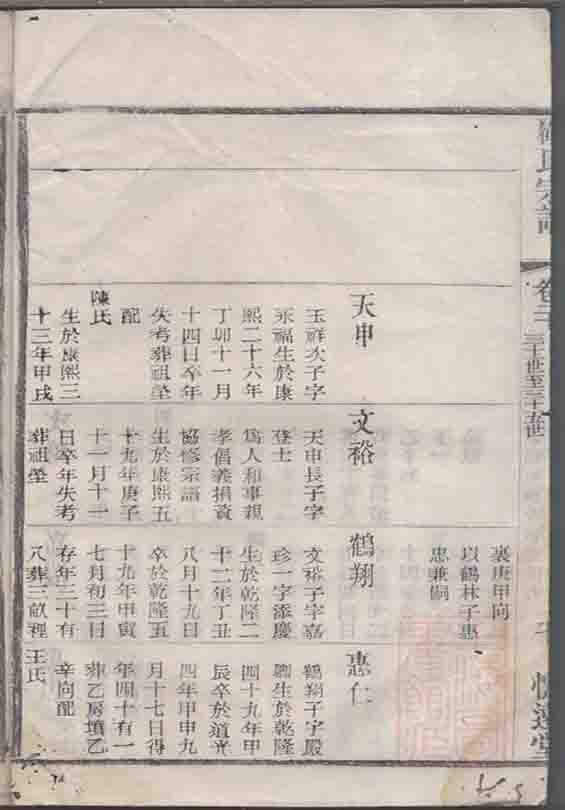 氏宗譜
卷三
裏庚甲向
以鶴林子惠
忠兼嗣
天申
玉祥次子字
永福生於康
熙二十六年
丁卯十一月
十四日卒年
失考葬祖塋
配
陳氏
生於康熙三
十三年甲戌
文裕
天申長子字
登士
爲人和事親
孝倡義捐資
協修宗譜
生於康熙五
十九年庚子
十一月十一
日卒年失考
葬祖塋
鶴翔
文裕子字嘉
珍一字添慶
生於乾隆二
十二年丁丑
八月十九日
卒於乾隆五
十九年甲寅
七月初三日
存年三十有
八葬三畝裡
惠仁
鶴翔子字殿
卿生於乾隆
四十九年甲
辰卒於道光
四年甲申九
月十七日得
年四十有一
葬乙房墳乙
辛向配
王氏